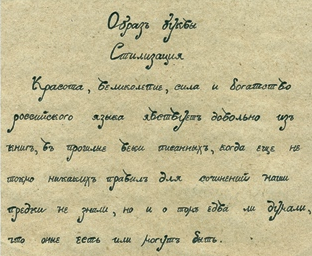 Образъ буквы
Стилизация
Красота, великолепие, сила и богатство
российского языка явствуетъ довольно изъ
книгъ, въ прошлые веки писанныхъ, когда еще не
токмо никакихъ правилъ для сочинений наши
предки не знали, но и о томъ едва ли думали,
что оные есть или могутъ быть.